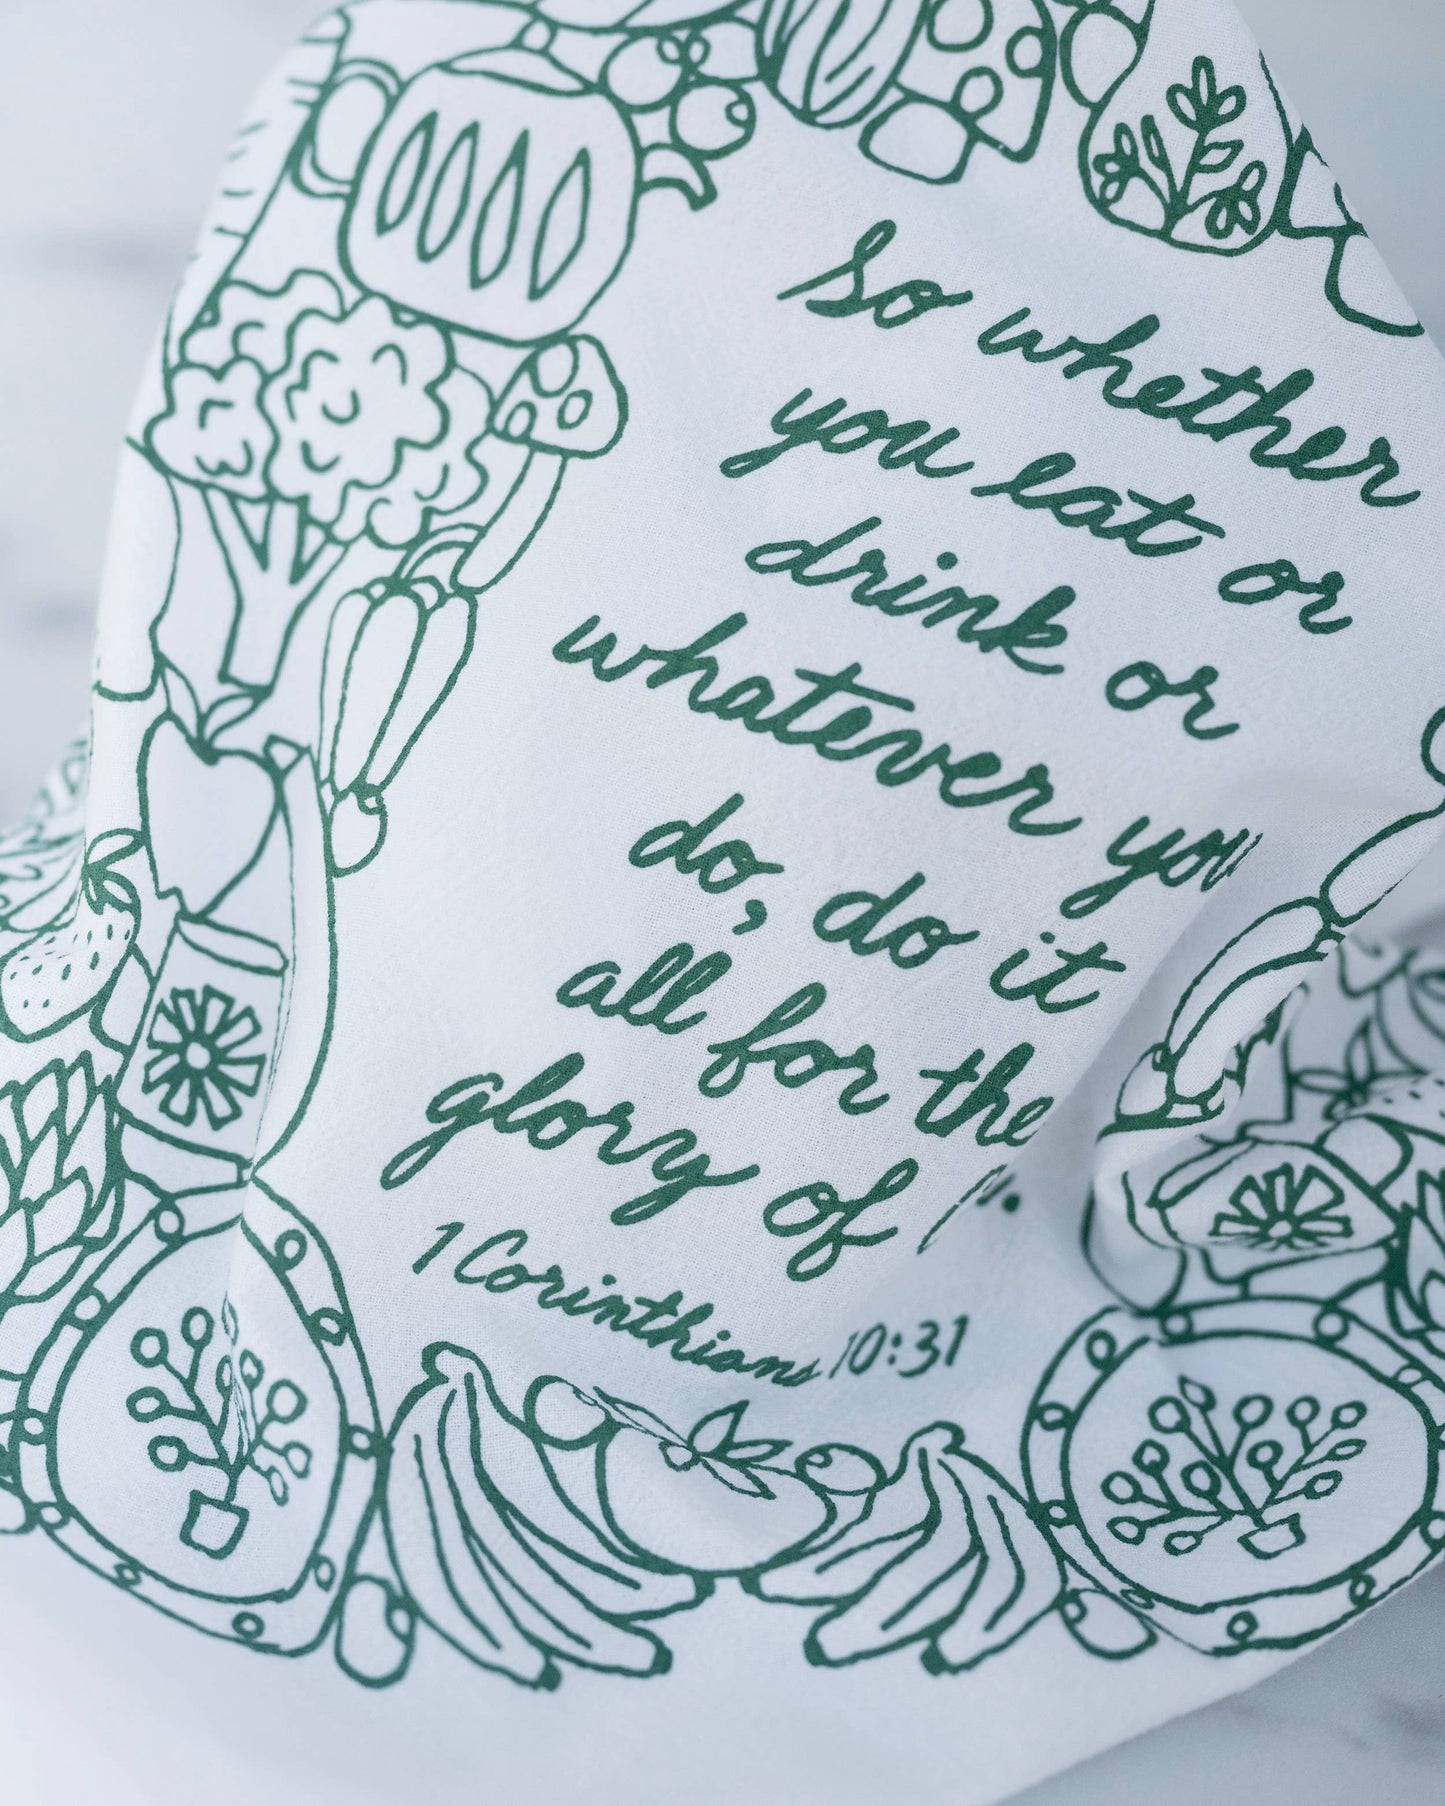 So whether
you eat or
drink or
whatever you
do, do it
all for the
glory of
1 Corinthians 10:31